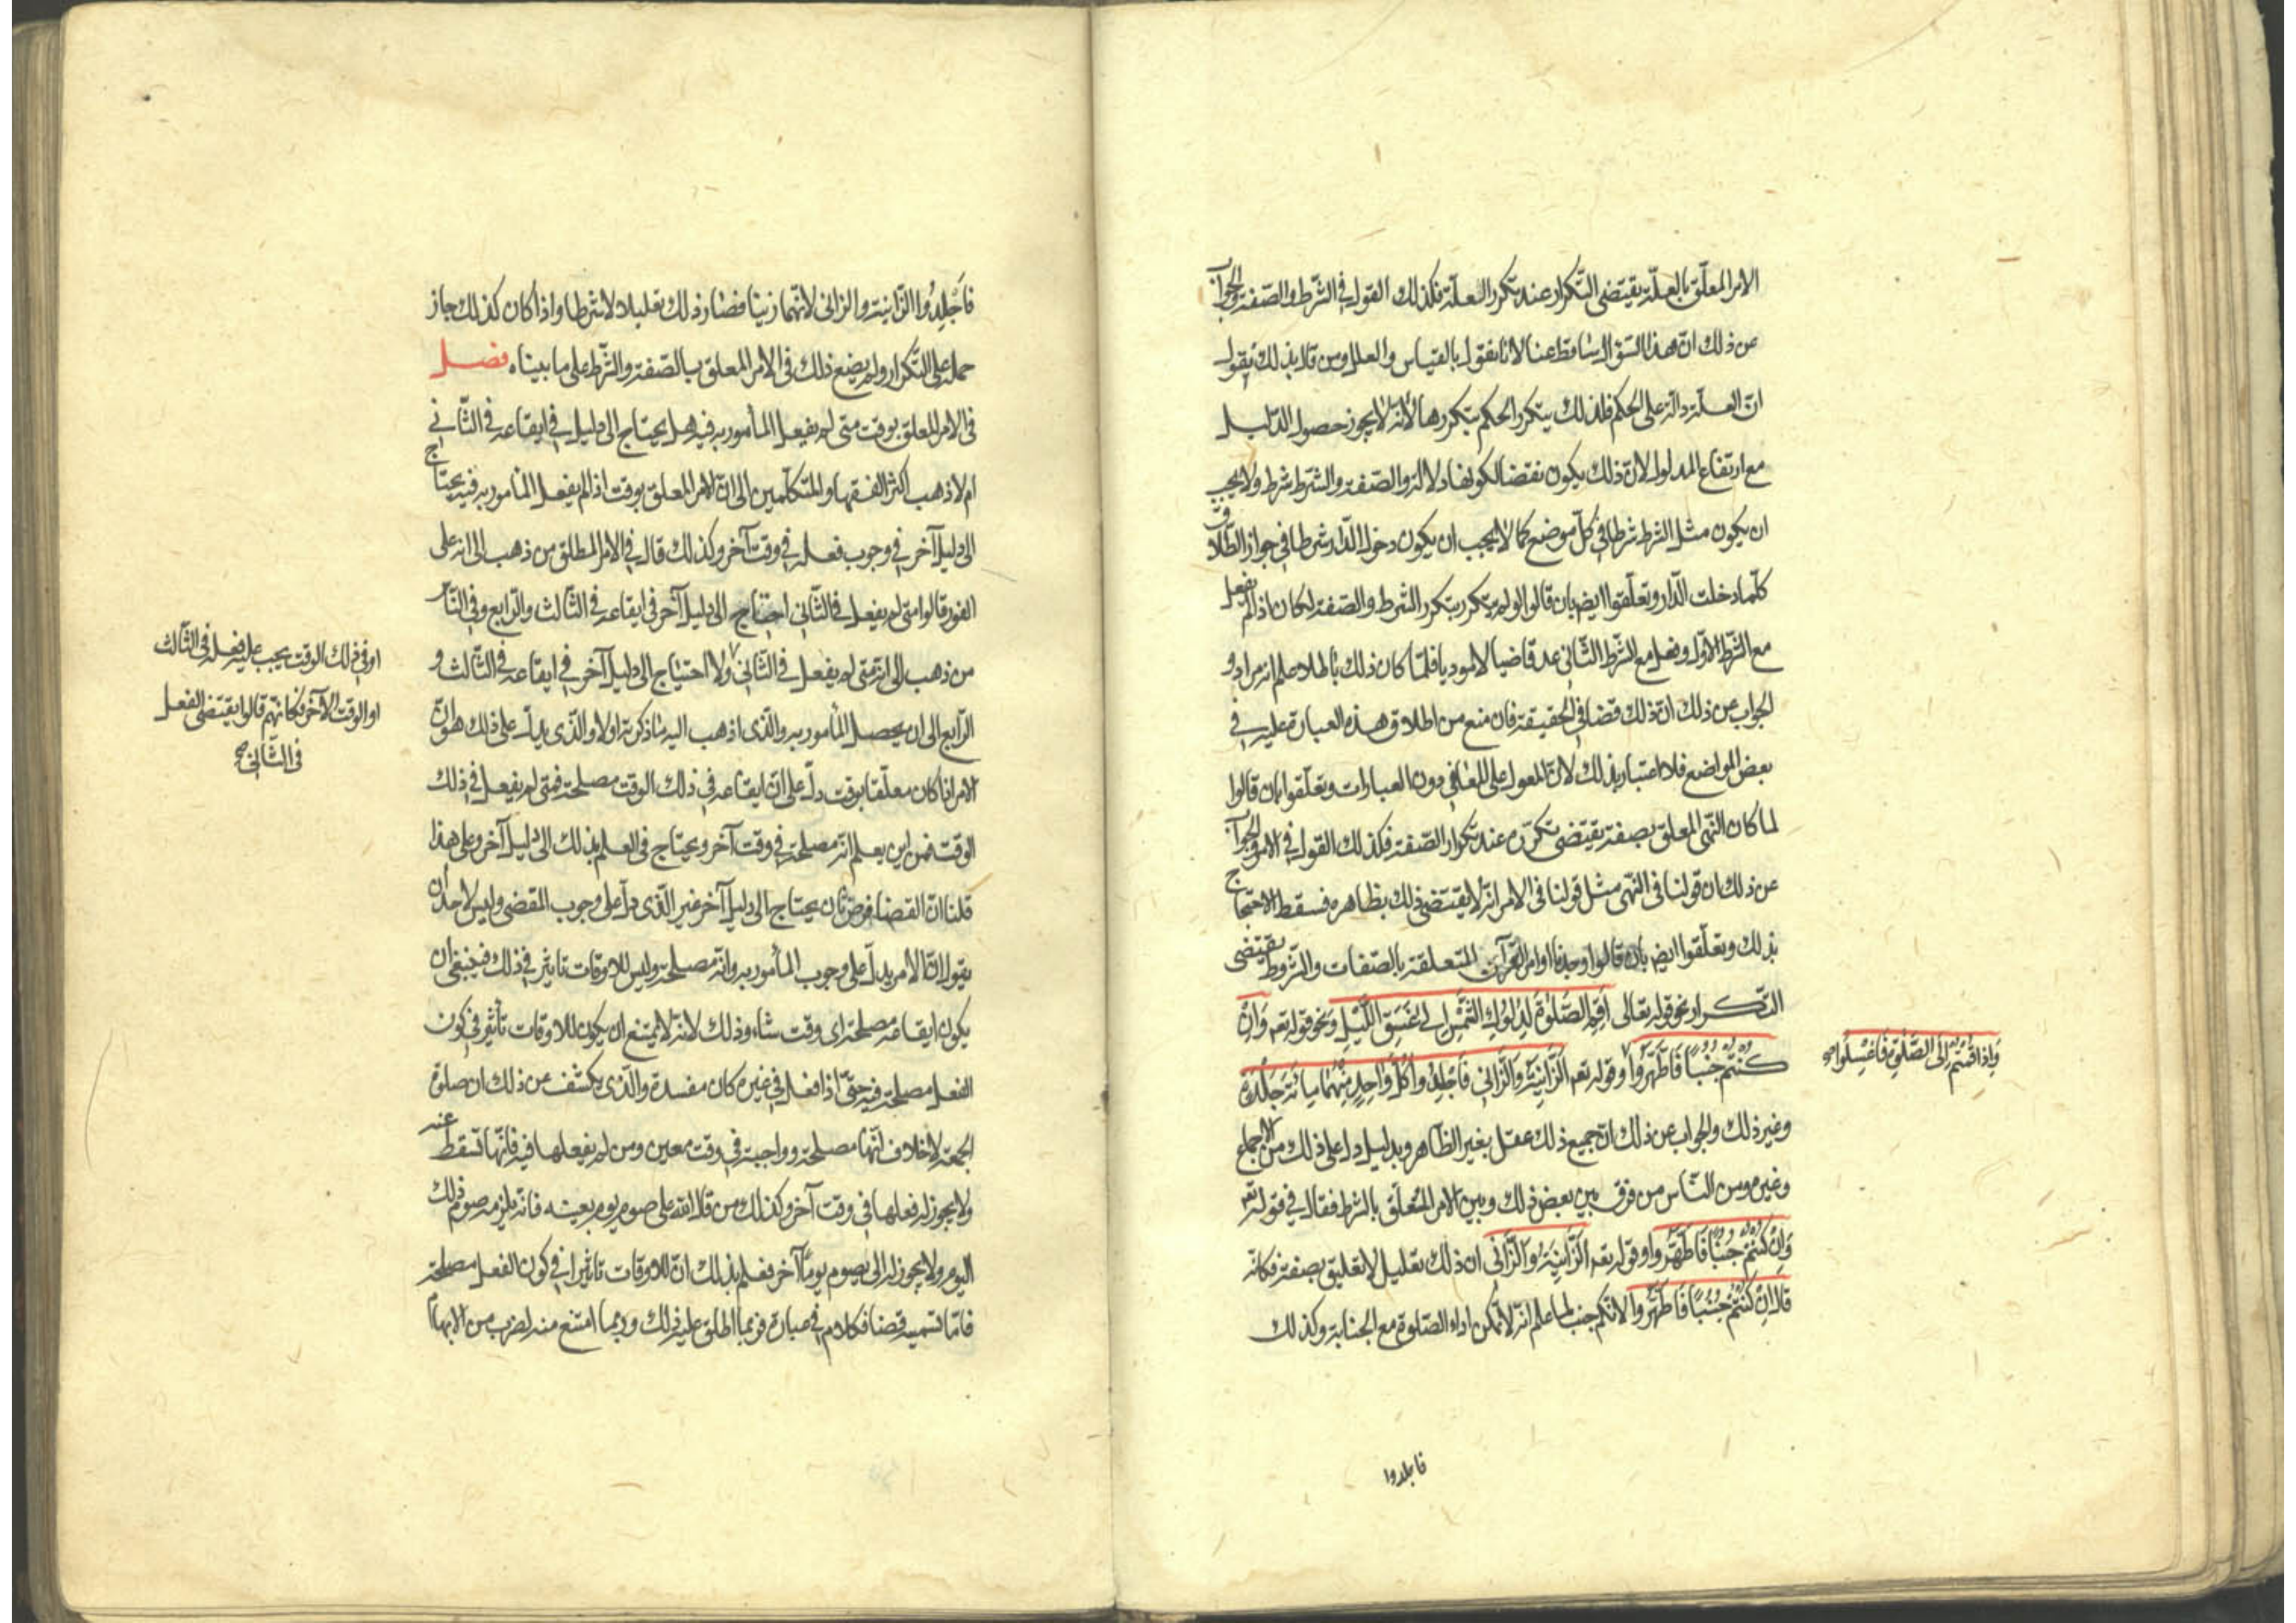 الامر المعلّق بالعلّة يقتضى التّكرار عند تكرر العلّة فكذلك القول في الشّرط والصّفة والجواب
عن ذلك انّ هذا السّؤال ساقط عنا لانا لا نقول بالقياس والعلل ومن قال بذلك يقول
انّ العلّة دالّة على الحكم فلذلك يتكرر الحكم بتكررها لانّه لا يجوز حصول الدّليل
مع ارتفاع المدلول لانّ ذلك يكون نقضا لكونها دلالة والصّفة والشّرط شرط ولا يجب
ان يكون مثل الشرط شرطا في كلّ موضع كما لا يجب ان يكون دخول الدّار شرطا في جواز الطّلاق
كلّما دخلت الدّار وتعلّقوا ايضا بان قالوا لو لم يتكرر بتكرر الشرط والصّفة لكان اذا لم يفعل
مع الشّرط الاوّل وفعل مع الشّرط الثّانى عد قاضيا لا موديا فلمّا كان ذلك باطلا علم انه مراد و
الجواب عن ذلك انّ ذلك قضا في الحقيقة فان منع من اطلاق هذه العبارة عليه في
بعض المواضع فلا اعتبار بذلك لانّ المعول على المعانى دون العبارات وتعلّقوا بان قالوا
لما كان النّهى المعلق بصفة يقتضى تكرّره عند تكرار الصّفة فكذلك القول في الامر والجواب
عن ذلك ان قولنا فى النّهى مثل قولنا فى الامر انّه لا يقتضى ذلك بظاهره فسقط الاحتجاج
بذلك وتعلّقوا ايض بان قالوا وجدنا اوامر القرآن المتعلقة بالصّفات والشّروط يقتضى
التّكرار نحو قوله تعالى اَقِمِ الصَّلوٰةَ لِدُلُوكِ الشَّمْسِ اِلى غَسَقِ اللَّيْلِ ونحو قوله تعم وَاِنْ
كُنْتُمْ جُنُبًا فَاطَّهَّرُوا وقوله تعم اَلزَّانِيَةُ وَالزَّانى فَاجْلِدُوا كُلَّ وَاحِدٍ مِنْهُمٰا مِائَةَ جَلْدَةٍ
وَاِذا قُمْتُمْ اِلَى الصَّلوٰةِ فَاغْسِلُوا صح
وغير ذلك والجواب عن ذلك انّ جميع ذلك عقل بغير الظّاهر وبدليل دل على ذلك من الاجماع
وغيره ومن النّاس من فرق بين بعض ذلك وبين الامر المتعلّق بالشرط فقال في قوله تعم
وَاِنْ كُنْتُمْ جُنُبًا فَاطَّهَّرُوا وقوله تعم اَلزَّانِيَةُ وَالزَّانى ان ذلك تعليل لا تعليق بصفة فكانّه
قال اِنْ كُنْتُمْ جُنُبًا فَاطَّهَّرُوا لانّكم جنب لما علم انّه لا تمكن اداء الصّلوة مع الجنابة وكذلك
فاجلدوا
فَاجْلِدُوا الزّانية والزانى لانّهما زنيا فصار ذلك تعليلا لا شرطا واذا كان كذلك جاز
حمله على التّكرار ولم يضع ذلك فى الامر المعلق بالصّفة والشّرط على ما بيناه فصل
فى الامر المعلق بوقت متى لم يفعل المأمور به فيه هل يحتاج الى دليل في ايقاعه في الثّانى
ام لا ذهب اكثر الفقها والمتكلّمين الى انّ الامر المعلق بوقت اذا لم يفعل المأمور به فيه يحتاج
الى دليل آخر في وجوب فعله في وقت آخر وكذلك قال في الامر المطلق من ذهب الى انه على
الفور قالوا متى لم يفعل فى الثّانى احتاج الى دليل آخر فى ايقاعه فى الثّالث والرّابع وفى النّاس
من ذهب الى انه متى لم يفعل فى الثّانى ولا احتياج الى دليل آخر في ايقاعه فى الثّالث و
او في ذلك الوقت يجب عليه فعله فى الثّالث
او الوقت الآخر فكانهم قالوا يقتضى الفعل
فى الثّانى صح
الرّابع الى ان يحصل المأمور به والّذى اذهب اليه ما ذكرته اولا والّذى يدلّ على ذلك هو انّ
الامر اذا كان معلّقا بوقت دلّ على انّ ايقاعه في ذلك الوقت مصلحة فمتى لم يفعل في ذلك
الوقت فمن اين يعلم انّه مصلحة في وقت آخر ويحتاج فى العلم بذلك الى دليل آخر وعلى هذا
قلنا انّ القضا فرض ثان يحتاج الى دليل آخر غير الّذى دلّ على وجوب المقضى وليس لاحد ان
يقول انّ الامر يدلّ على وجوب المأمور به وانّه مصلحة وليس للاوقات تاثير في ذلك فينبغى ان
يكون ايقاعه مصلحة اى وقت شاء وذلك لانّه لا يمتنع ان يكون للاوقات تأثير في كون
الفعل مصلحة فيه حتّى اذا فعل في غيره كان مفسدة والّذى يكشف عن ذلك ان صلوة
الجمعة لا خلاف انّها مصلحة وواجبة في وقت معين ومن لم يفعلها فيه فانّها تسقط عنه
ولا يجوز له فعلها في وقت آخر وكذلك من قال لله على صوم يوم بعينه فانّه يلزمه صوم ذلك
اليوم ولا يجوز له الى يصوم يومًا آخر فعلم بذلك انّ للاوقات تاثيرا في كون الفعل مصلحة
فامّا تسميته قضا فكلام في عبارة فربما اطلق عليه ذلك وربما امتنع منه لضرب من الابهام